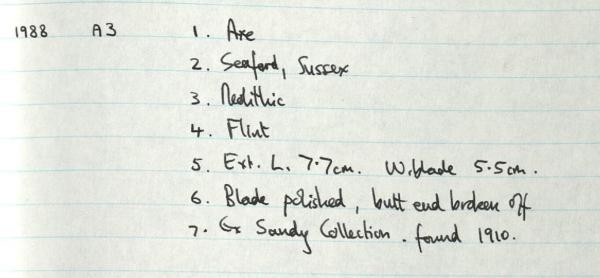 1988 A3 1. Axe
2. Seaford, Sussex
3. Neolithic
4. Flint
5. Ext. L. 7.7cm. W.blade 5.5cm.
6. Blade polished, butt end broken off
7. Ex Sandy Collection. found 1910.